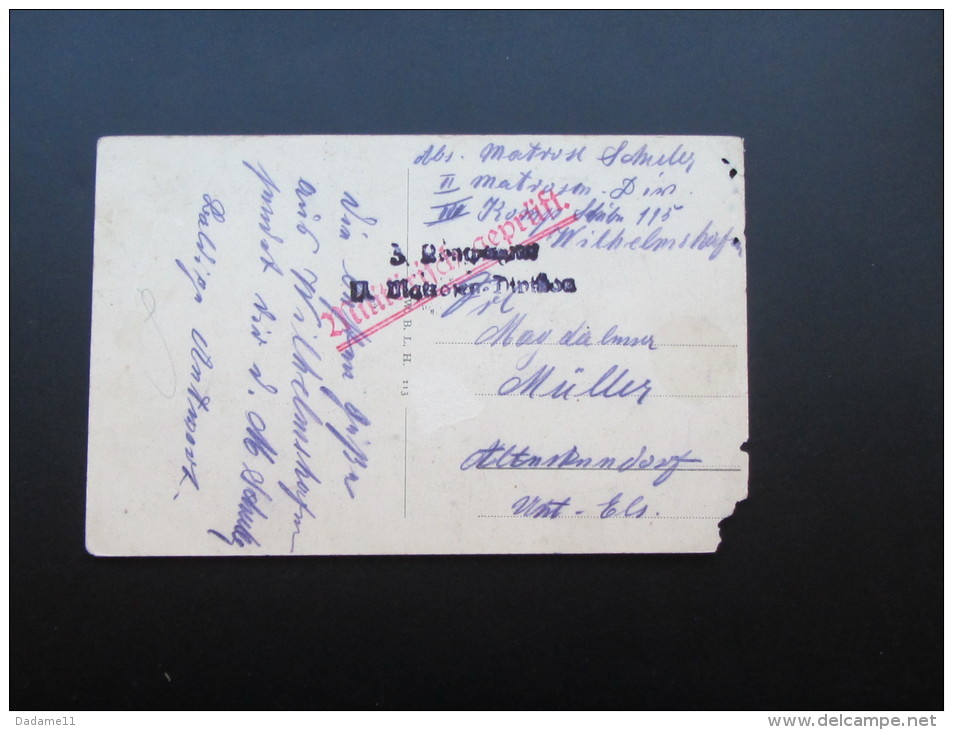 Abs. Matrose Schuler
II Matrosen. Div.
III Komp. Stube 115
Wilhelmshafen
Militärisch geprüft.
3. Kompagnie
II. Matrosen-Division
Frl
Magdalener
Müller
Unt-Els.
B. L. H. 113
Die besten Grüße
aus Wilhelmshafen
sendet dir d. M Schuler
Baldige Antwort.
Dadame11
http://www.delcampe.net